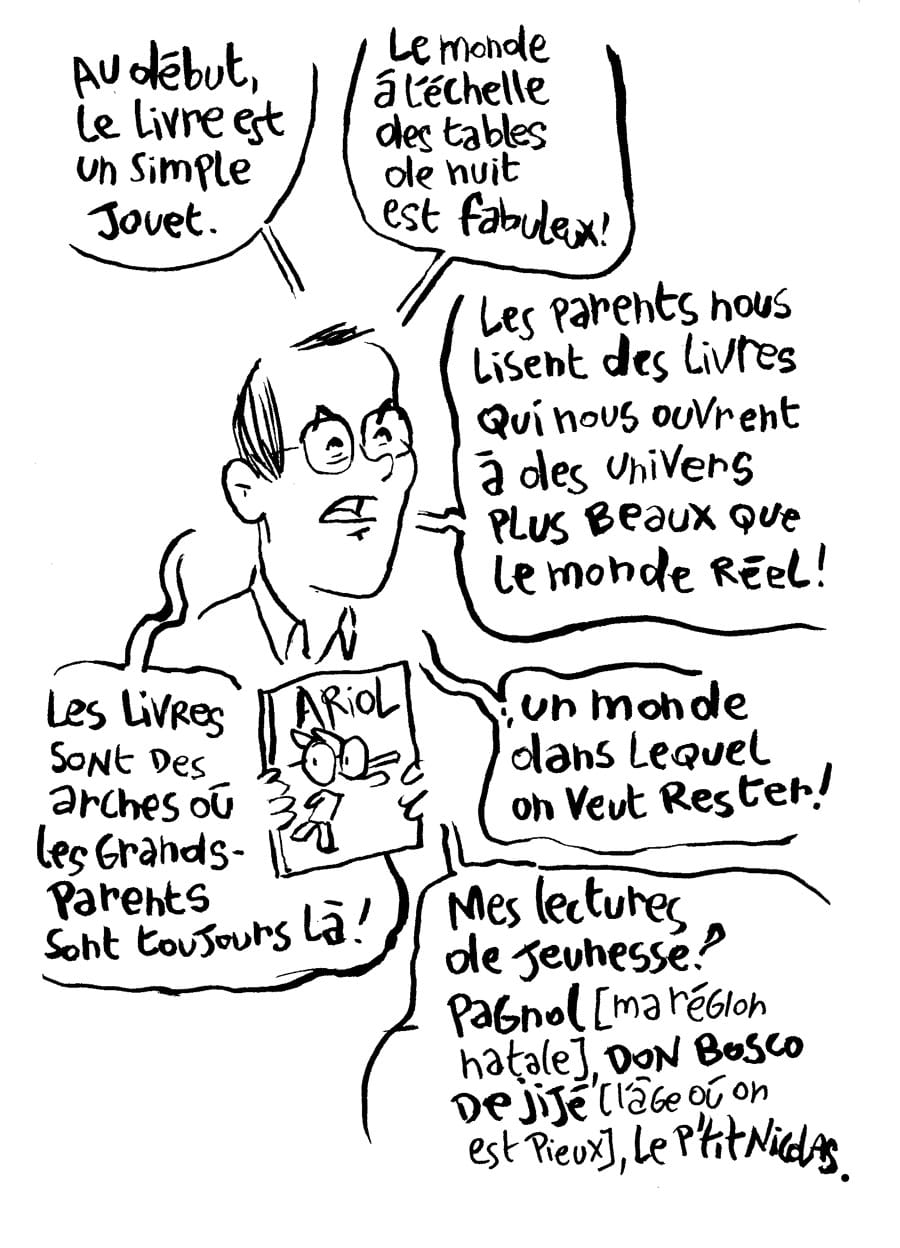 Au début,
le livre est
un simple
jouet.
Le monde
à l'échelle
des tables
de nuit
est fabuleux!
Les parents nous
lisent des livres
qui nous ouvrent
à des univers
plus beaux que
le monde réel!
Les livres
sont des
arches où
les grands-
parents
sont toujours là!
ARIOL
un monde
dans lequel
on veut rester!
Mes lectures
de jeunesse?
Pagnol [ma région
natale], DON BOSCO
DE JIJÉ [l'âge où on
est pieux], Le P'tit Nicolas.